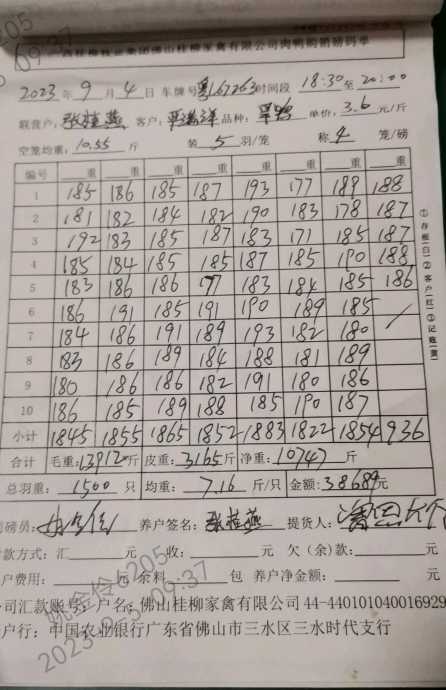 桂柳牧业集团佛山桂柳家禽有限公司肉鸭购销磅码单
2023年9月4日 车牌号粤L67263时间段 18:30至20:00
联营户:张桂燕 客户: 品种: 单价:3.6元/斤
空笼均重:10.55斤 装5羽/笼 称4笼/磅
编号 重 重 重 重 重 重 重 重
1 185 186 185 187 193 177 189 188
2 181 182 184 182 190 183 178 187
3 192 183 185 187 183 171 185 187
4 185 184 185 185 187 185 190 188
5 183 186 186 177 183 184 185 186
6 186 191 185 191 190 189 185
7 184 186 191 189 193 182 180
8 183 186 189 184 188 181 189
9 180 186 186 182 191 180 186
10 186 185 189 188 185 190 187
小计 1845 1855 1865 1852 1883 1822 1854 936
合计 毛重:13912斤 皮重:3165斤 净重:10747斤
总羽重:1500只 均重:7.16斤/只 金额:38689元
磅员: 养户签名:张桂燕 提货人:
款方式:汇 元 收: 元 欠(余)款: 元
户费用: 元 余料 包 养户净金额: 元
司汇款账号:户名:佛山桂柳家禽有限公司 44-440101040016929
户行:中国农业银行广东省佛山市三水区三水时代支行
①存根(白)②客户(红)③记账(黄)
6205
09:37
姚金伶6205
2023-9-5 09:37